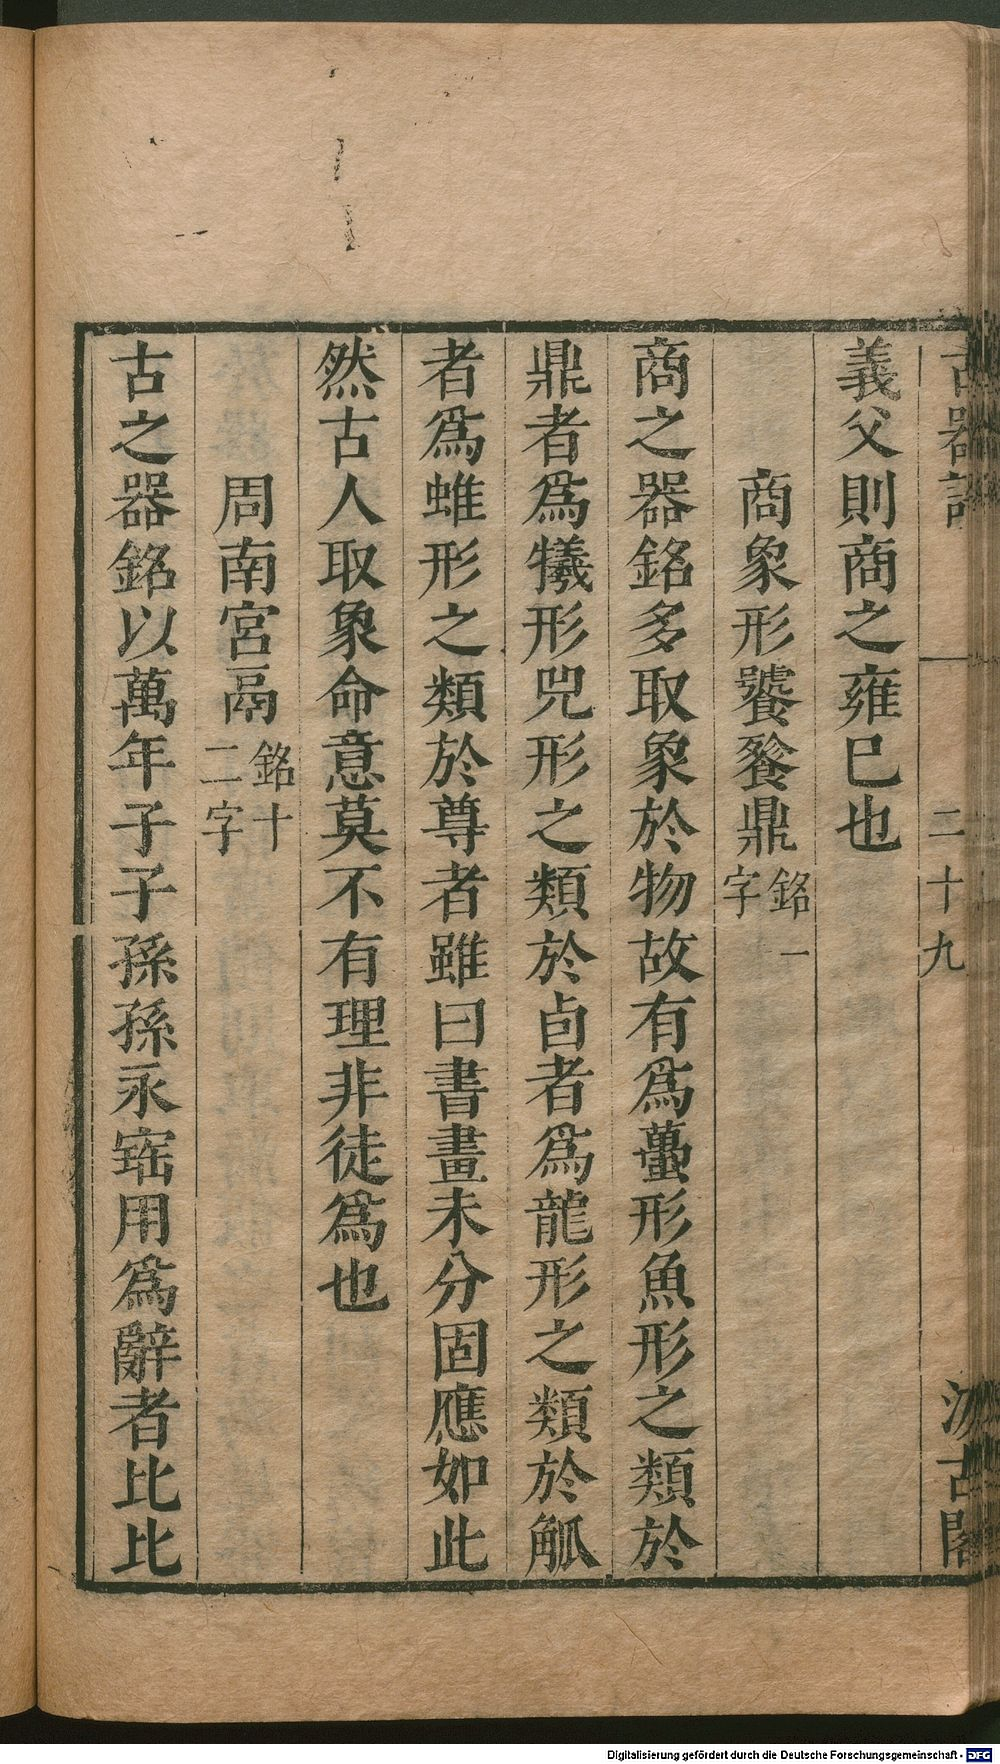 古器記 二十九 汲古閣
義父則商之雍巳也
商象形饕餮鼎銘一字
商之器銘多取象於物故有爲蠆形魚形之類於
鼎者爲犧形兕形之類於卣者爲龍形之類於觚
者爲蜼形之類於尊者雖曰書畫未分固應如此
然古人取象命意莫不有理非徒爲也
周南宮鬲銘十二字
古之器銘以萬年子子孫孫永寚用爲辭者比比
Digitalisierung gefördert durch die Deutsche Forschungsgemeinschaft - DFG